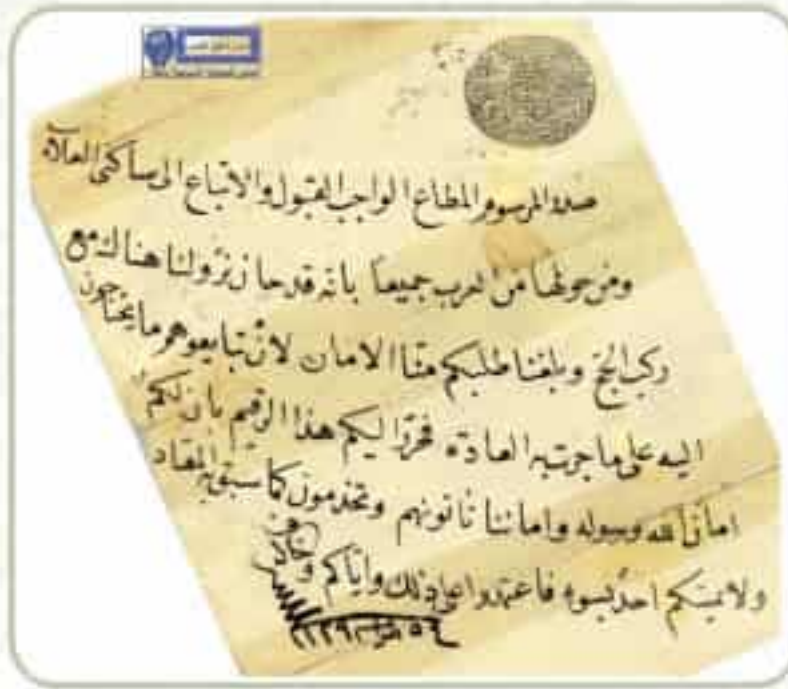 صدر المرسوم المطاع الواجب القبول والاتباع الى ساكنى العلاء
ومن حولها من العرب جميعا بانه قد حان نزولنا هناك مع
ركب الحج وبلغنا طلبكم منا الامان لان تبايعوهم ما يحتاجون
اليه على ما جرت به العادة فحررنا اليكم هذا الرقيم بان لكم
امان الله ورسوله واماننا تاتونهم وتخدمون كما سبق به المعتاد
ولا يمسكم احد بسوء فاعتمدوا على ذلك واياكم وخلافه